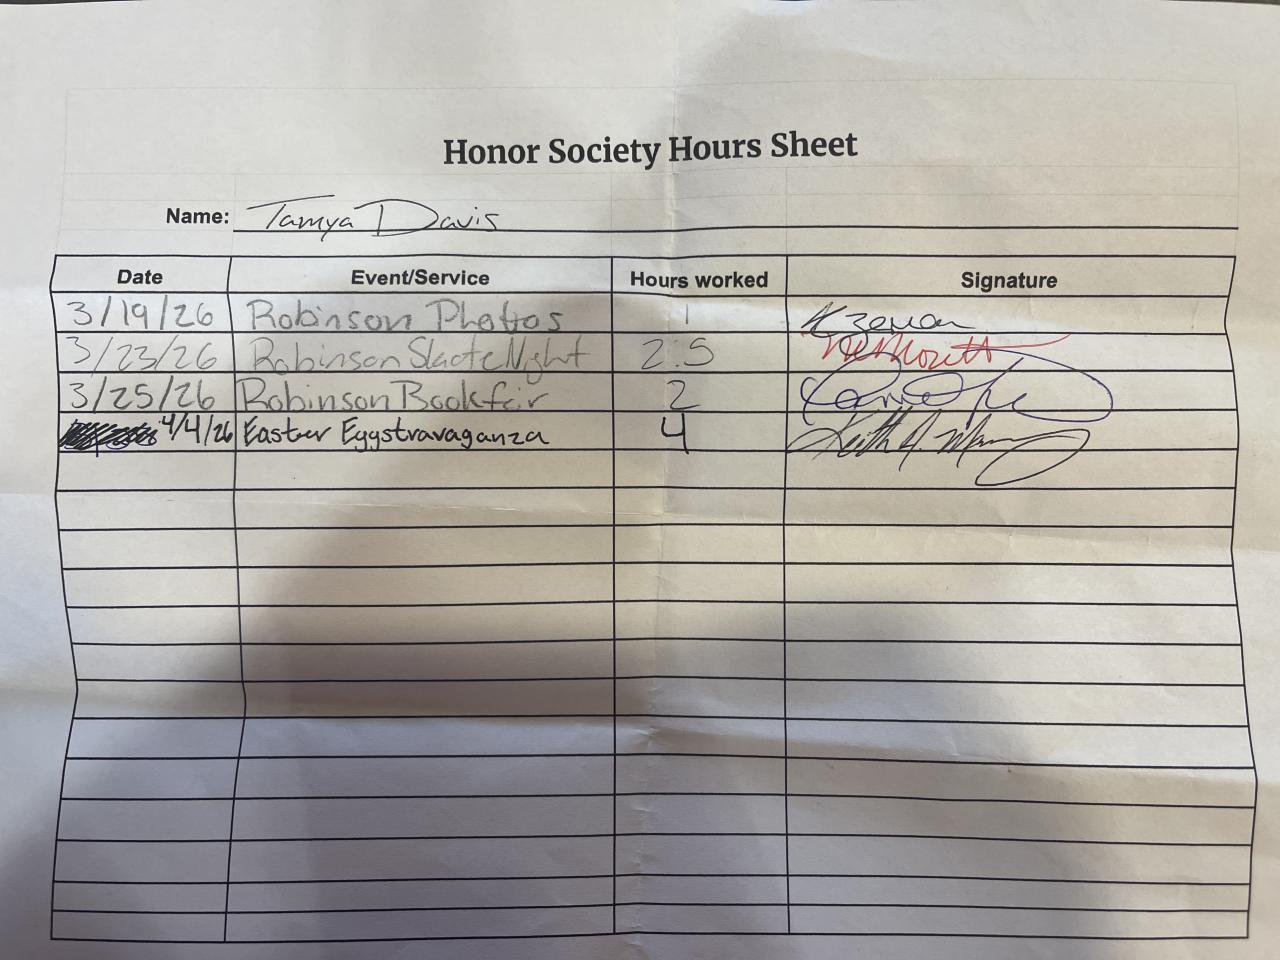 Honor Society Hours Sheet
Name: Tamya Davis
Date Event/Service Hours worked Signature
3/19/26 Robinson Photos 1
3/23/26 Robinson Skacte Night 2.5
3/25/26 Robinson Bookfair 2
4/4/26 Easter Eggstravaganza 4 Keith J.